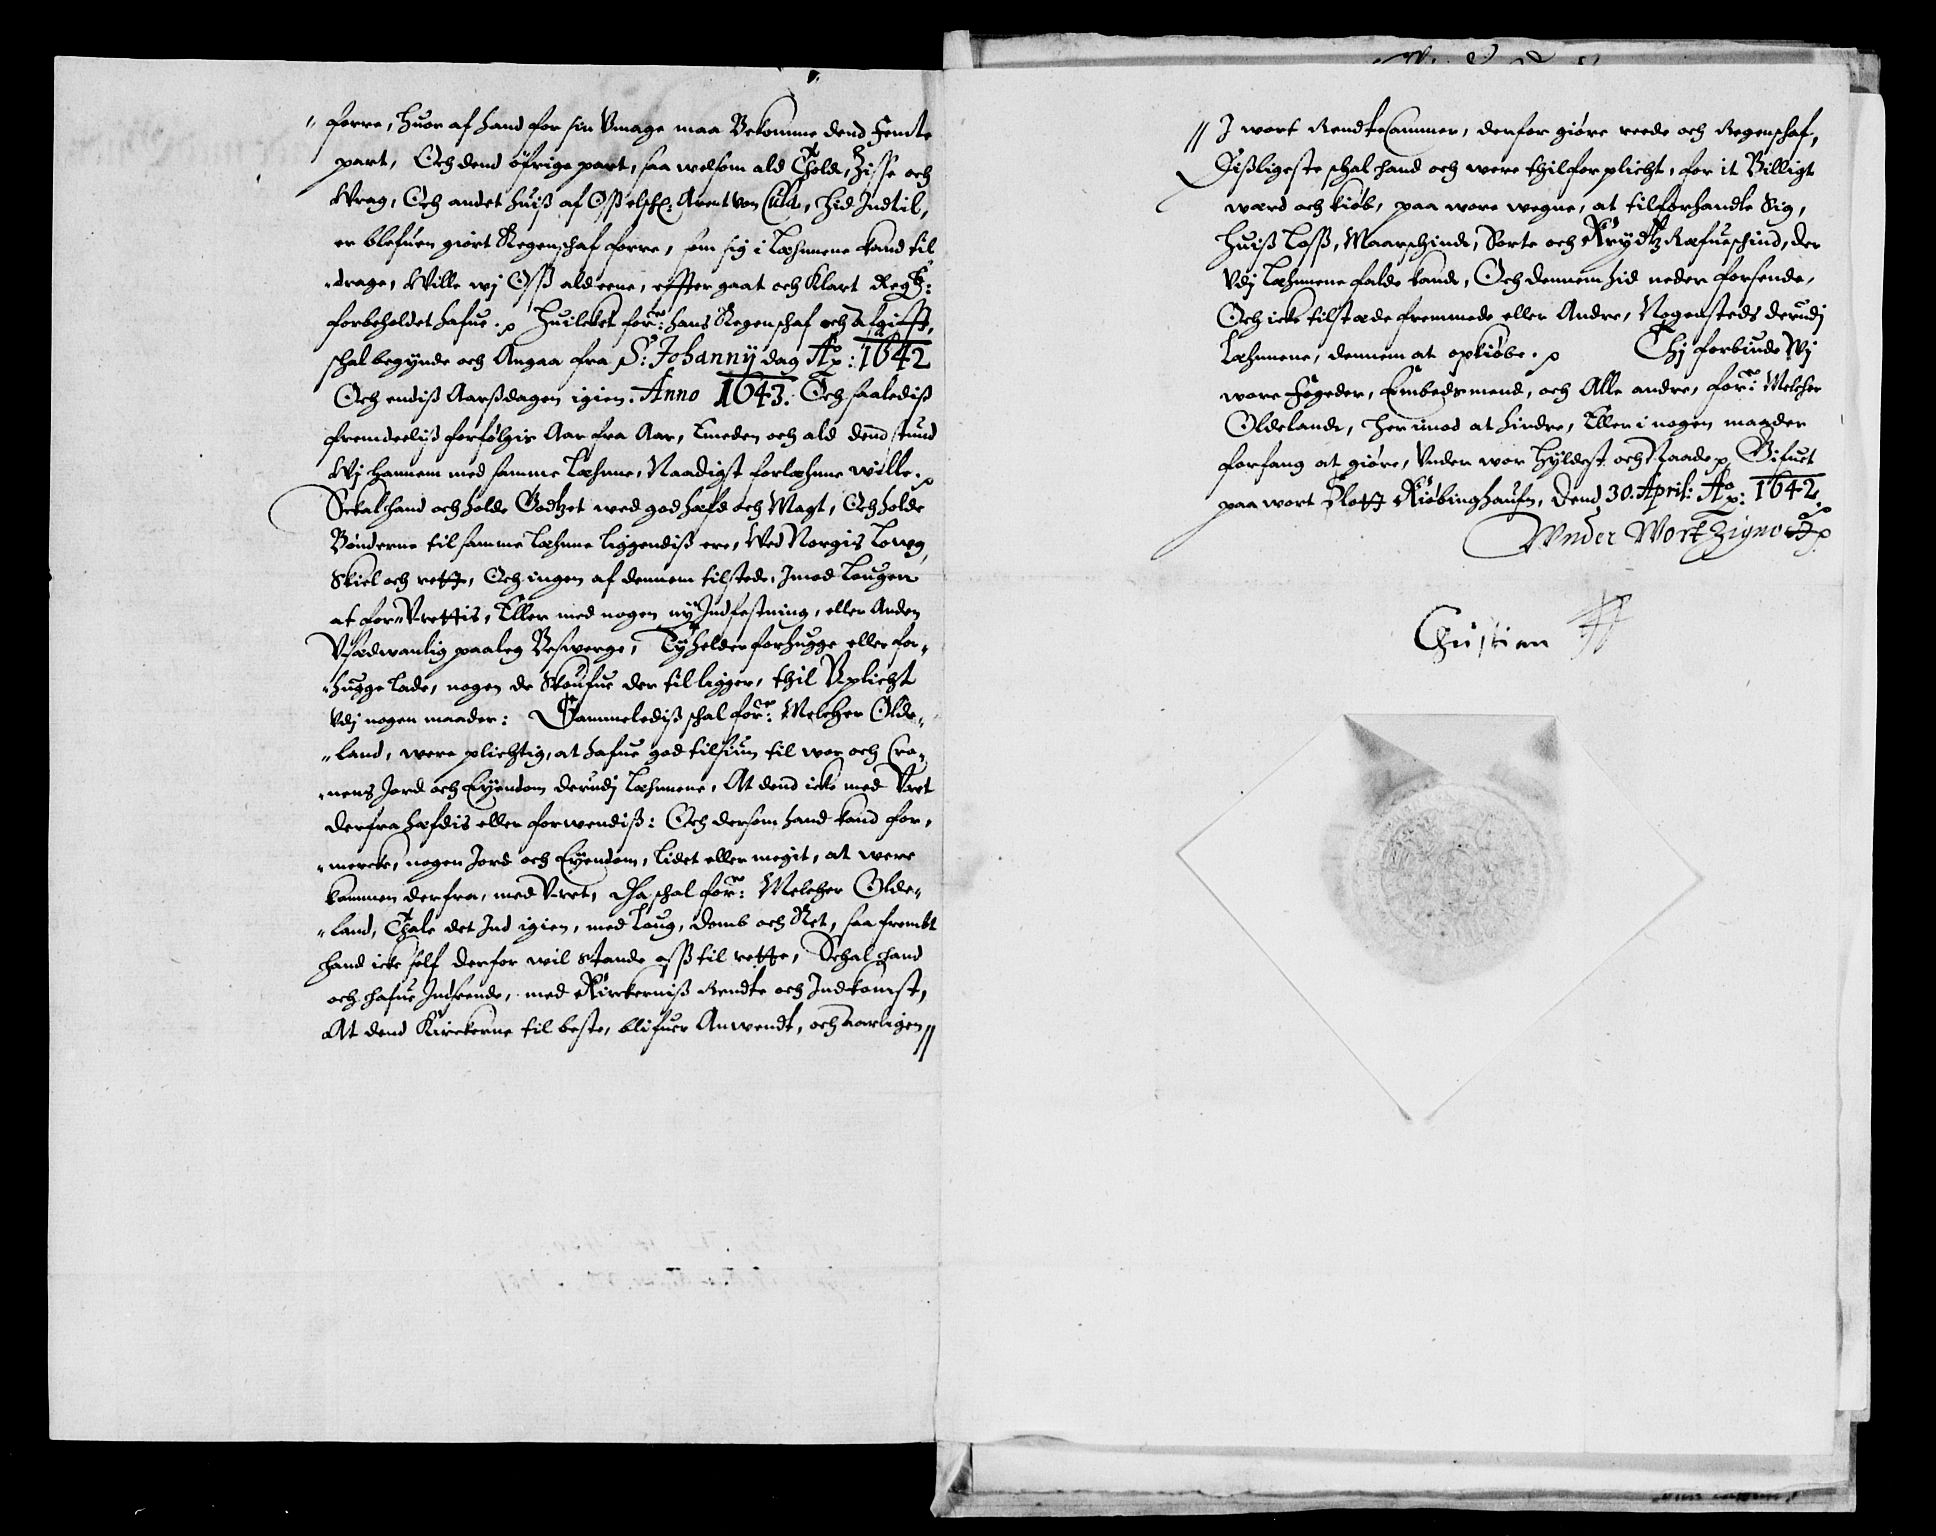 „ forre, huor af hand for sin Vmage maa Bekomme dend Femte
part, Och dend öfrige part, saa welsom ald Thold, Zisse och
Wrag, Och andet huiß af Oß elschl: Arent von Cula, hid Indtil,
er blefuen giört Regenschaf forre, som sig i Læhnnene kand til
„drage, Wille wj Oß aldeene, effter gaat och Klart Regsk:
forbeholdet hafue. Huilcket forne: hans Regenschaf och Afgifft,
schal begÿnde och Angaa fra S: Johannÿ dag Ao: 1642
Och endiß Aarßdagen igien. Anno 1643. Och saalediß
fremdeeliß forfölgis Aar fra Aar, Imeden och ald dend stund
Wj hannem med samme Læhnne, Naadigst forlæhnne wille.
Schal hand och holde Godtzet wed god hæfd och Magt, Och holde
Bönderne til samme Læhnne liggendiß ere, Wed Norgis Loug,
Skiel och rett, Och ingen af dennem tilstede, Imod Lougen
at for„Vrettis, Eller med nogen nÿ Indfestning, eller Anden
Vsædwanlig paaleg Beswerge, Eÿ helder forhugge eller for„
„hugge lade, nogen de Skoufue der til ligger, thil Vplicht
Vdj nogen maader: Sammelediß schal forne: Melcher Olde„
„land, were plichtig, at hafue god tilsiun til wor och Cro„
„nens Jord och Eÿendom derudj Læhnnene, At dend icke med Vret
derfra hæfdis eller forwendiß: Och dersom hand kand for„
„mercke, nogen Jord och Eÿendom, lidet eller megit, at were
kommen derfra, med Vret, Da schal forne: Melcher Olde„
„land, Thale det Ind igien, med Loug, Domb och Ret, saa fremt
hand icke self derfor wil stande oß til rette, Schal hand
och hafue Indseende, med Kirckerniß Rendte och Indkomst,
At dend Kirckerne til beste, blifuer Anwendt, och aarligen //
// J wort RendteCammer, derfor giöre reede och Regenschaf,
Dißligeste schal hand och were thilforplicht, for it Billigt
wærd och kiöb, paa wore wegne, at tilforhandle Sig,
huiß Loß, Maarschind, Sorte och Krÿdtz Ræfueschind, der
Vdj Læhnnene falde kand, Och dennem hid neder forsende,
Och icke tilstæde fremmede eller Andre, Nogensteds derudj
Læhnnene, dennem at opkiöbe. Thj forbiude Wj
wore Fogeder, Embedsmend, och Alle andre, forne: Melcher
Oldeland, her imod at hindre, Eller i nogen maader
forfang at giöre, Vnder wor Hÿldest och Naade. Gifuet
paa wort Slott Kiöbinghaufn, Dend 30. April: Ao: 1642.
Wnder Wort Zignet
Christian